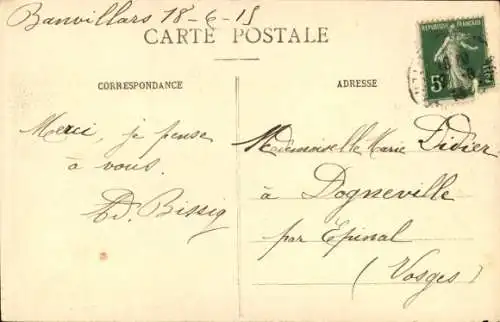 Banvillars 18-6-15
CARTE POSTALE
CORRESPONDANCE
ADRESSE
REPUBLIQUE FRANÇAISE
5
Merci, je pense
à vous.
Ad. Bissig
Mademoiselle Marie Didier
à Dogneville
par Épinal
(Vosges)